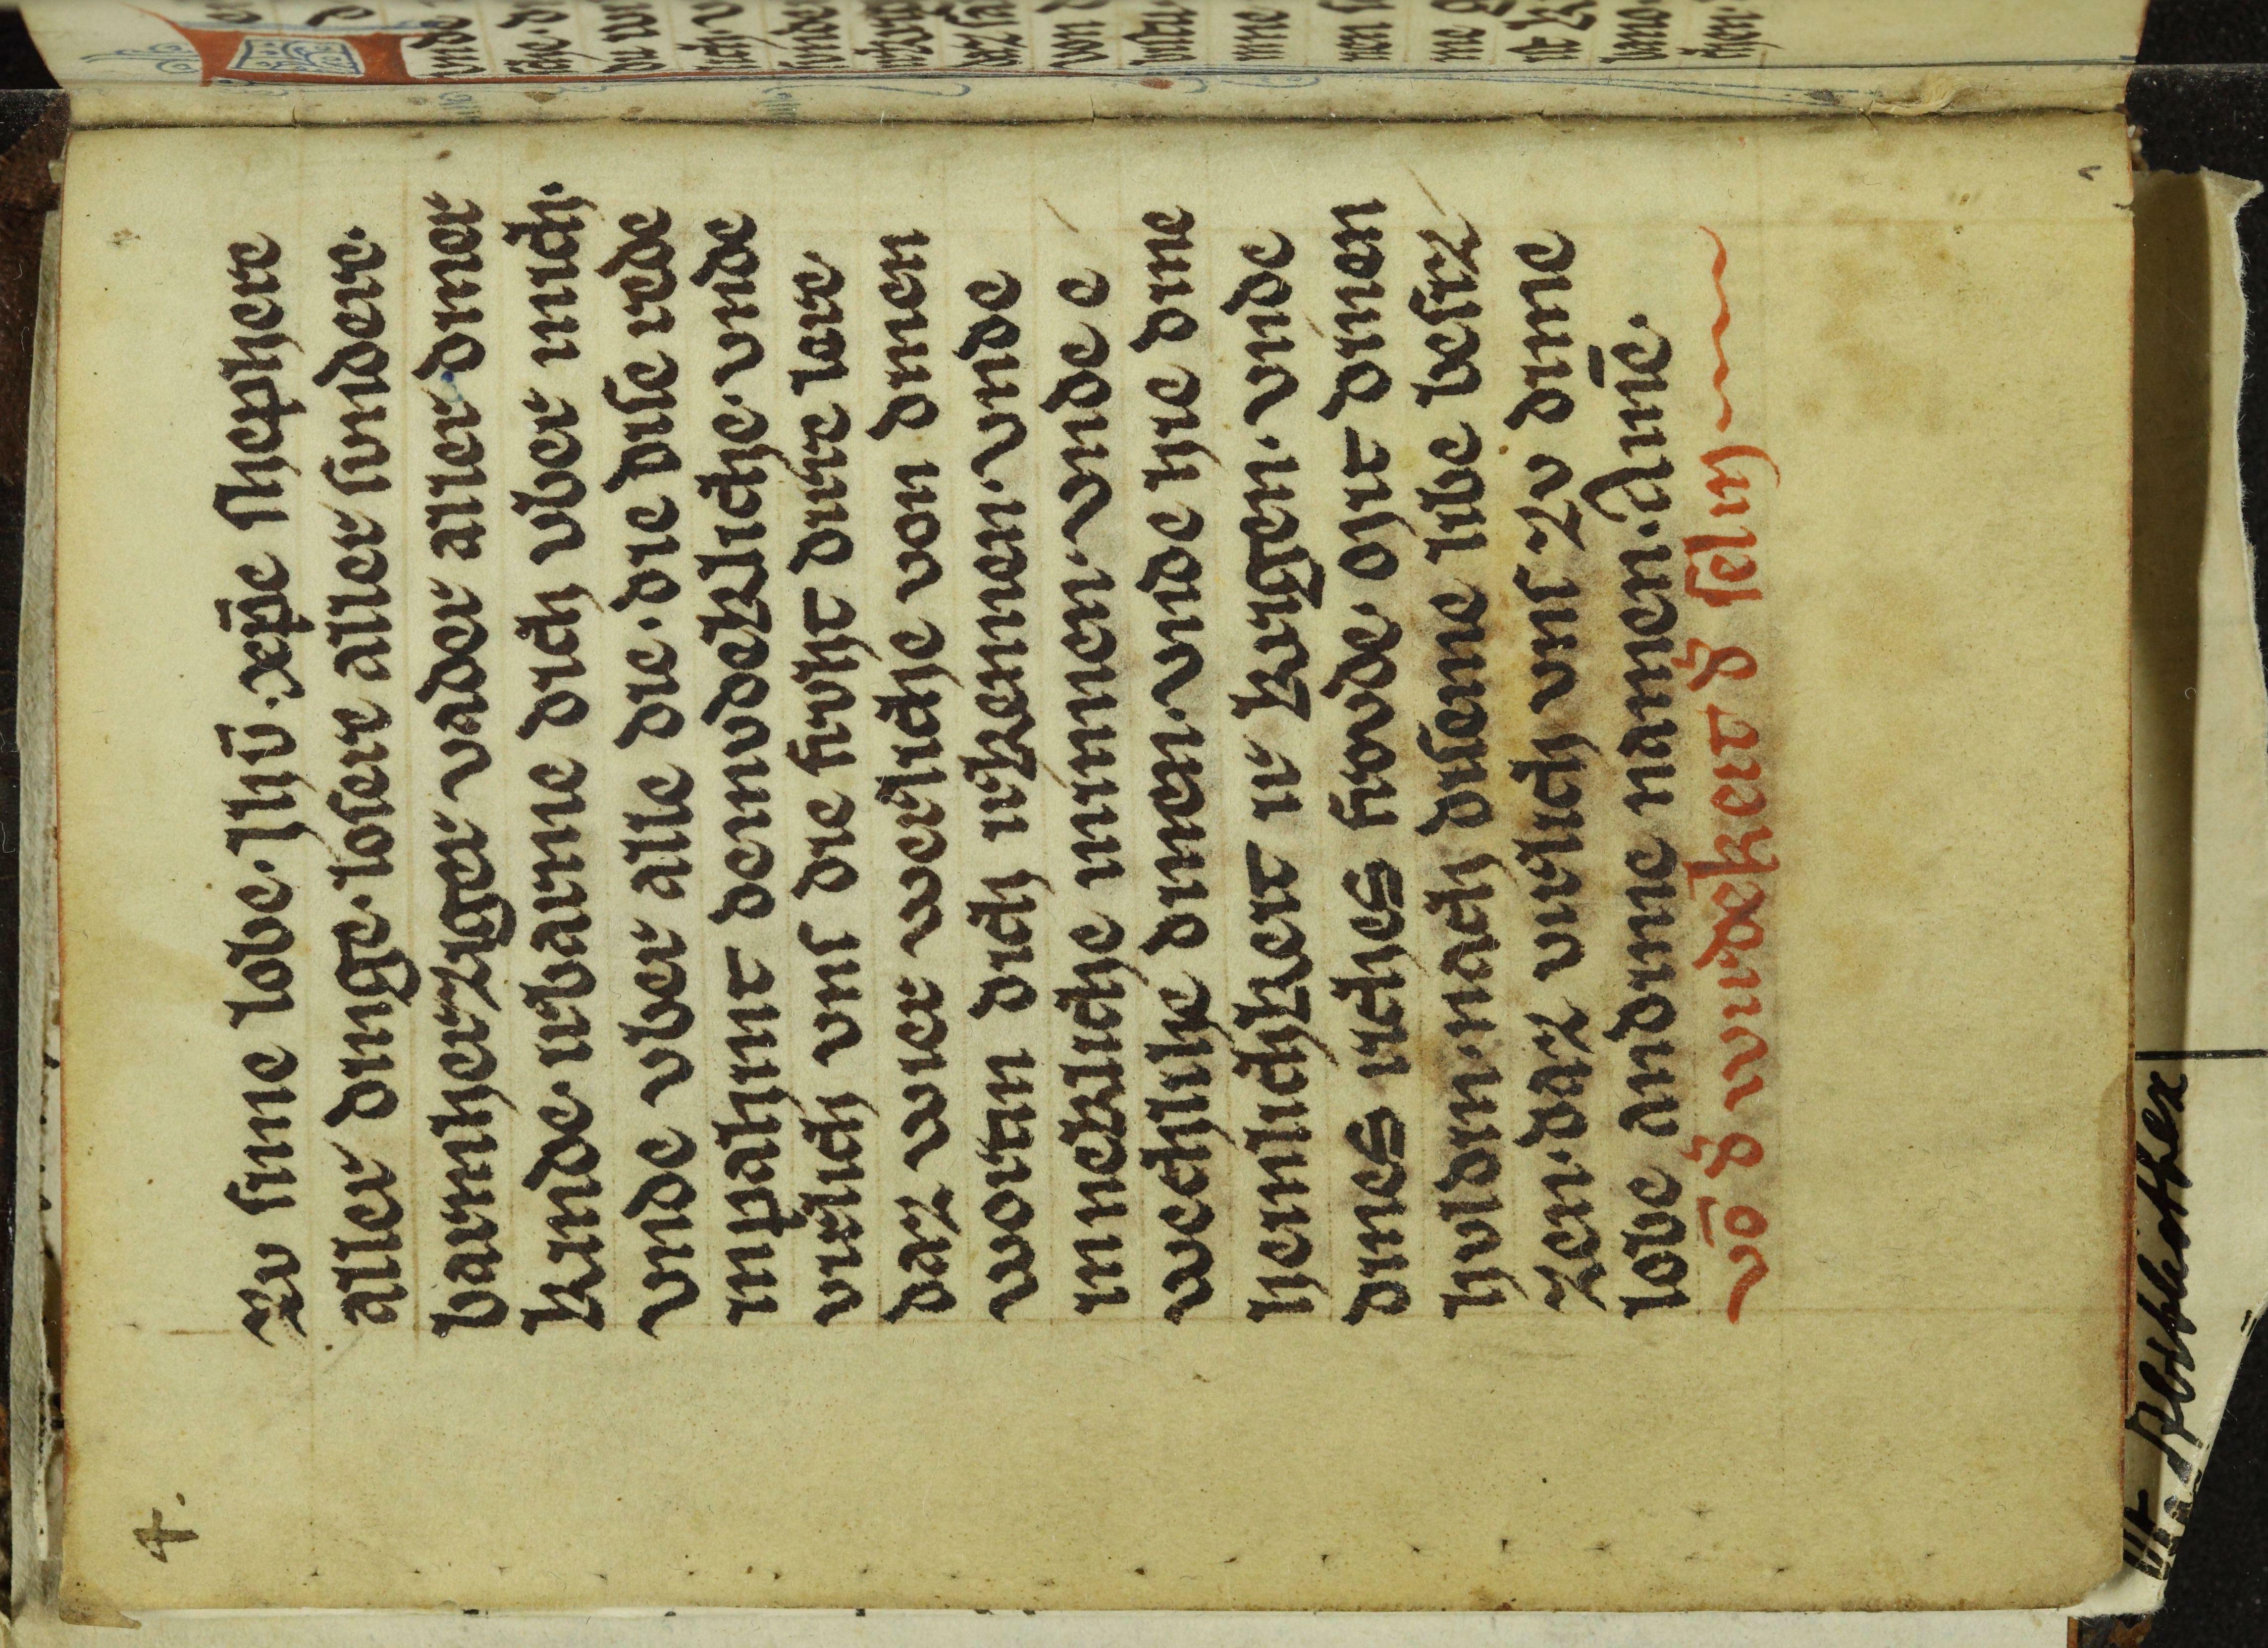 4.
zv sine lobe. ihū. xp̄e shephere
aller dinge. losere aller svndere.
barmherziger vader aller diner
kinde. irbarme dich vber mich.
vnde vber alle die. die dise rede
inpahint demvdekliche. vnde
virlich vns die hvht dirre lere
daz wier werliche von dinen
wortin dich irkennen. vnde
inneklliche minnen. vnde e
wechlihe dinen. vnde hie dine
hemlichkeit ir krigen. vnde
dines riches hvode. ovt dinen
hvldin. nach diseme libe besiz
zen. daz virlich vns zv dime
lobe andime namen. Amē.
vō d̄ wirdekeit d̄ sely